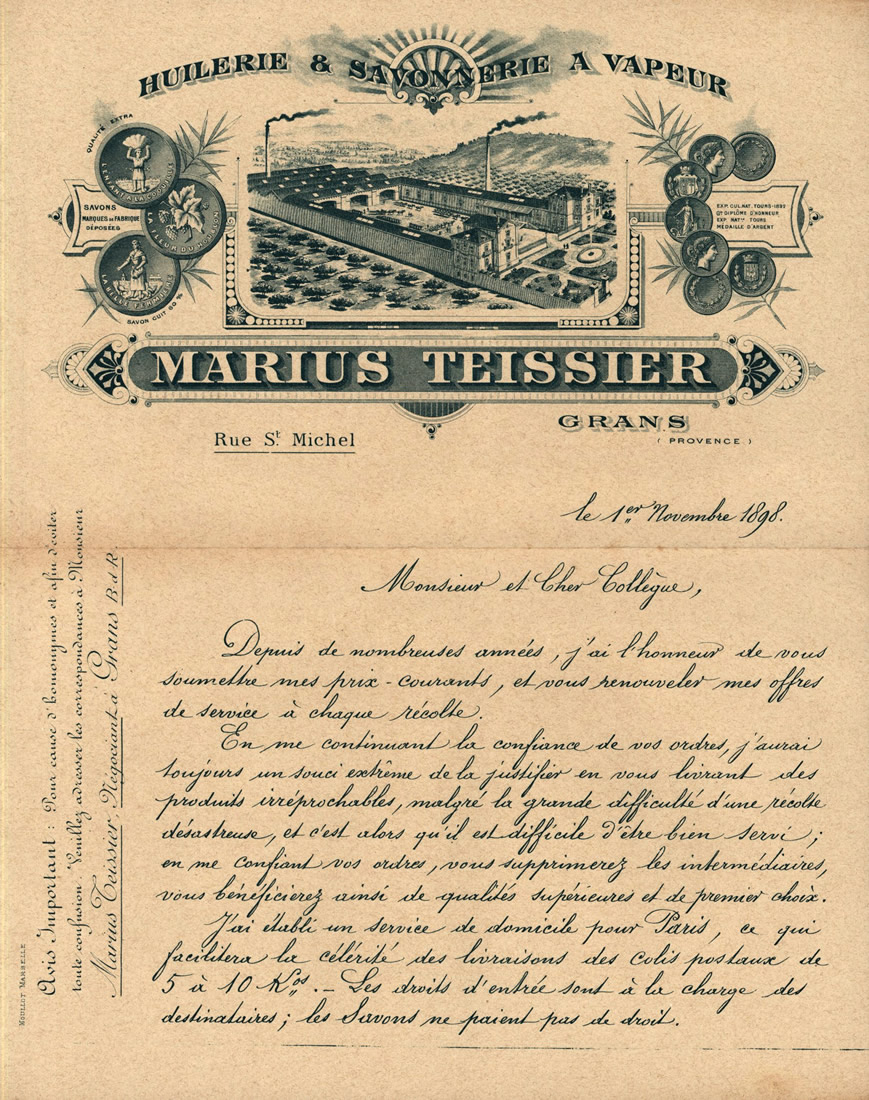 HUILERIE & SAVONNERIE A VAPEUR
QUALITÉ EXTRA
L'ENFANT A LA COQUILLE
SAVONS
MARQUES DE FABRIQUE
DÉPOSÉES
LA FLEUR DU
LA BELLE FERMIÈRE
SAVON CUIT 60 %
EXP. CUL. NAT. TOURS-1892
Gd DIPLÔME D'HONNEUR
EXP. NATle TOURS
MÉDAILLE D'ARGENT
MARIUS TEISSIER
GRANS
( PROVENCE )
Rue St Michel
le 1er Novembre 1898.
Monsieur et Cher Collègue,
Depuis de nombreuses années, j'ai l'honneur de vous
soumettre mes prix-courants, et vous renouveler mes offres
de service à chaque récolte.
En me continuant la confiance de vos ordres, j'aurai
toujours un souci extrême de la justifier en vous livrant des
produits irréprochables, malgré la grande difficulté d'une récolte
désastreuse, et c'est alors qu'il est difficile d'être bien servi ;
en me confiant vos ordres, vous supprimerez les intermédiaires,
vous bénéficierez ainsi de qualités supérieures et de premier choix.
J'ai établi un service de domicile pour Paris, ce qui
facilitera la célérité des livraisons des colis postaux de
5 à 10 Kos. - Les droits d'entrée sont à la charge des
destinataires ; les Savons ne paient pas de droit.
Avis Important : Pour cause d'homonymes et afin d'éviter
toute confusion Veuillez adresser les correspondances à Monsieur
Marius Teissier, Négociant à Grans B. d. R.
MOULLOT MARSEILLE